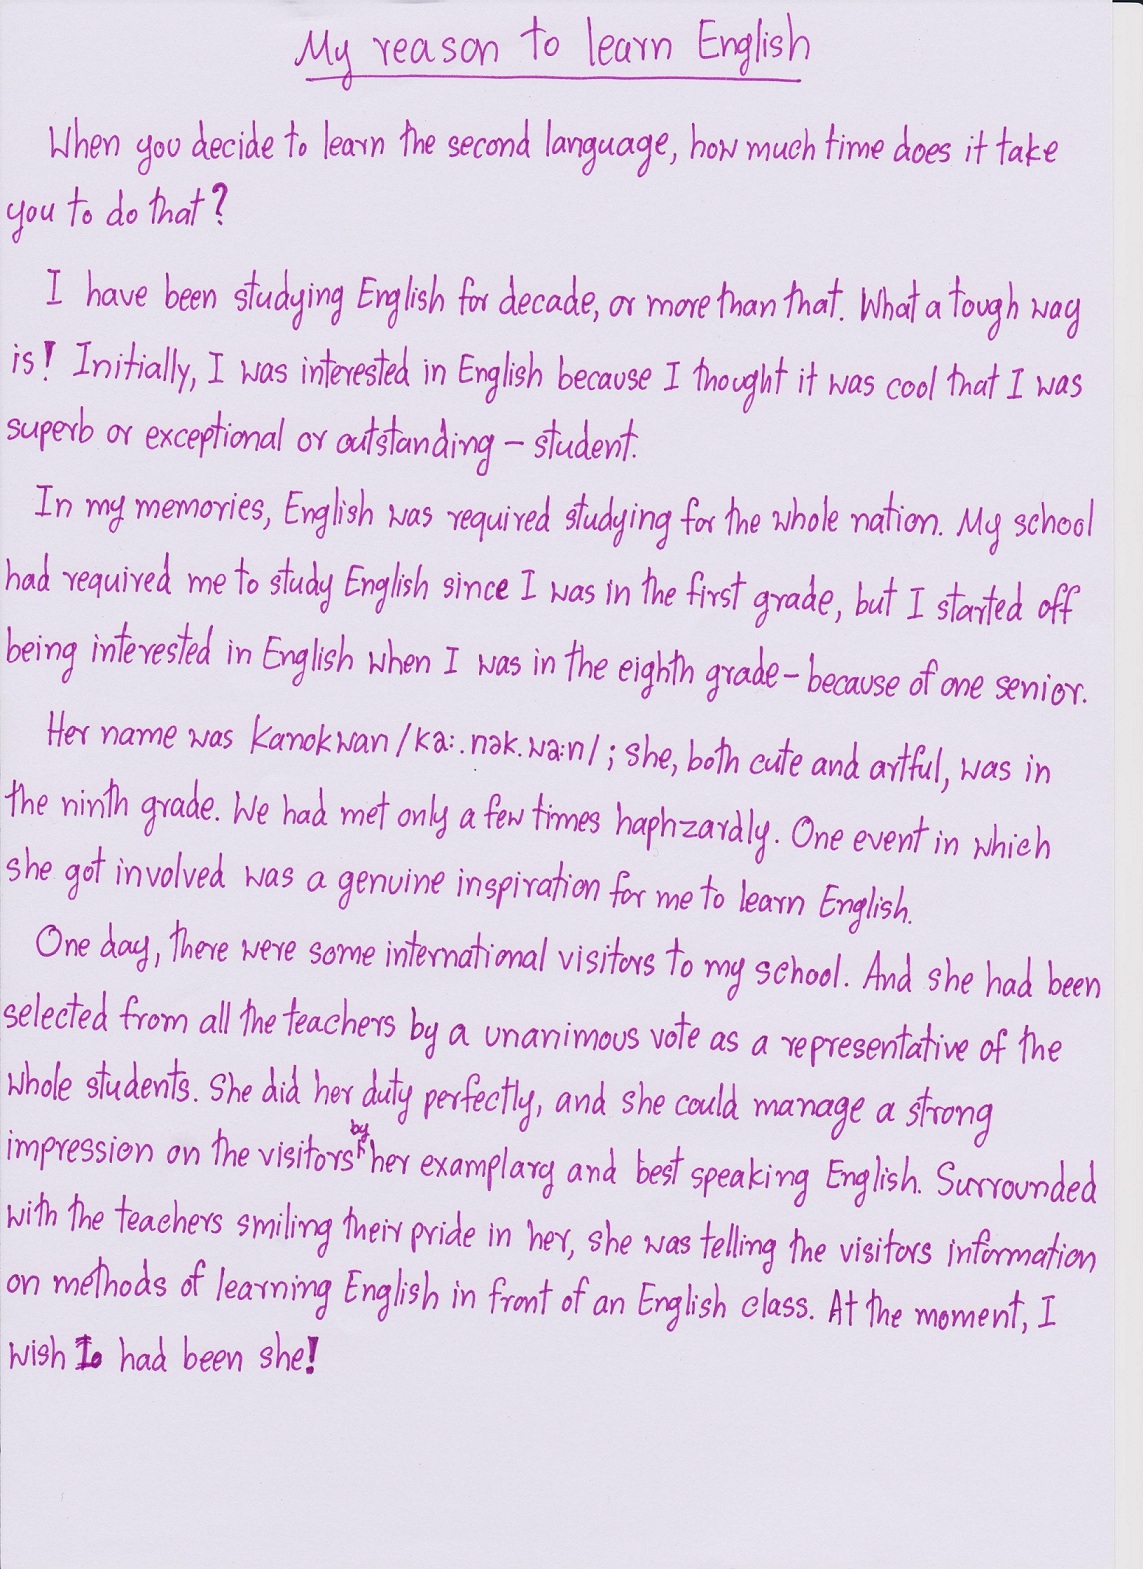 My reason to learn English
When you decide to learn the second language, how much time does it take
you to do that?
I have been studying English for decade, or more than that. What a tough way
is! Initially, I was interested in English because I thought it was cool that I was
superb or exceptional or outstanding – student.
In my memories, English was required studying for the whole nation. My school
had required me to study English since I was in the first grade, but I started off
being interested in English when I was in the eighth grade – because of one senior.
Her name was Kanokwan /ka:.nək.wa:n/; she, both cute and artful, was in
the ninth grade. We had met only a few times haphzardly. One event in which
she got involved was a genuine inspiration for me to learn English.
One day, there were some international visitors to my school. And she had been
selected from all the teachers by a unanimous vote as a representative of the
whole students. She did her duty perfectly, and she could manage a strong
impression on the visitors by her examplary and best speaking English. Surrounded
with the teachers smiling their pride in her, she was telling the visitors information
on methods of learning English in front of an English class. At the moment, I
wish I had been she!